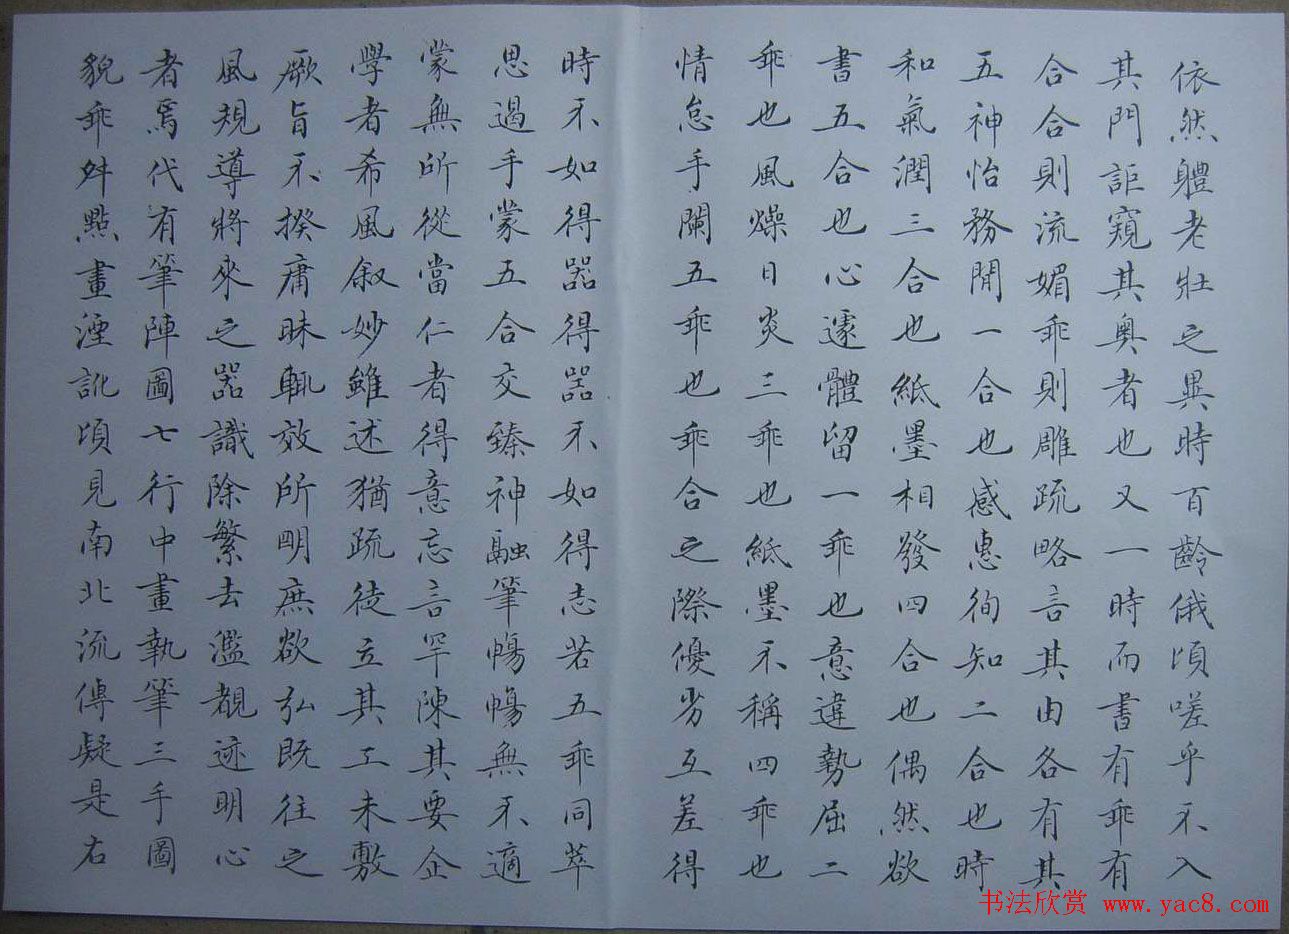 依然體老壯之異時百齡俄頃嗟乎不入
其門詎窺其奧者也又一時而書有乖有
合合則流媚乖則雕疏略言其由各有其
五神怡務閒一合也感惠徇知二合也時
和氣潤三合也紙墨相發四合也偶然欲
書五合也心遽體留一乖也意違勢屈二
乖也風燥日炎三乖也紙墨不稱四乖也
情怠手闌五乖也乖合之際優劣互差得
時不如得器得器不如得志若五乖同萃
思遏手蒙五合交臻神融筆暢暢無不適
蒙無所從當仁者得意忘言罕陳其要企
學者希風叙妙雖述猶疏徒立其工未敷
厥旨不揆庸昧輒效所明庶欲弘既往之
風規導將來之器識除繁去濫覩迹明心
者焉代有筆陣圖七行中畫執筆三手圖
貌乖舛點畫湮訛頃見南北流傳疑是右
书法欣赏 www.yac8.com